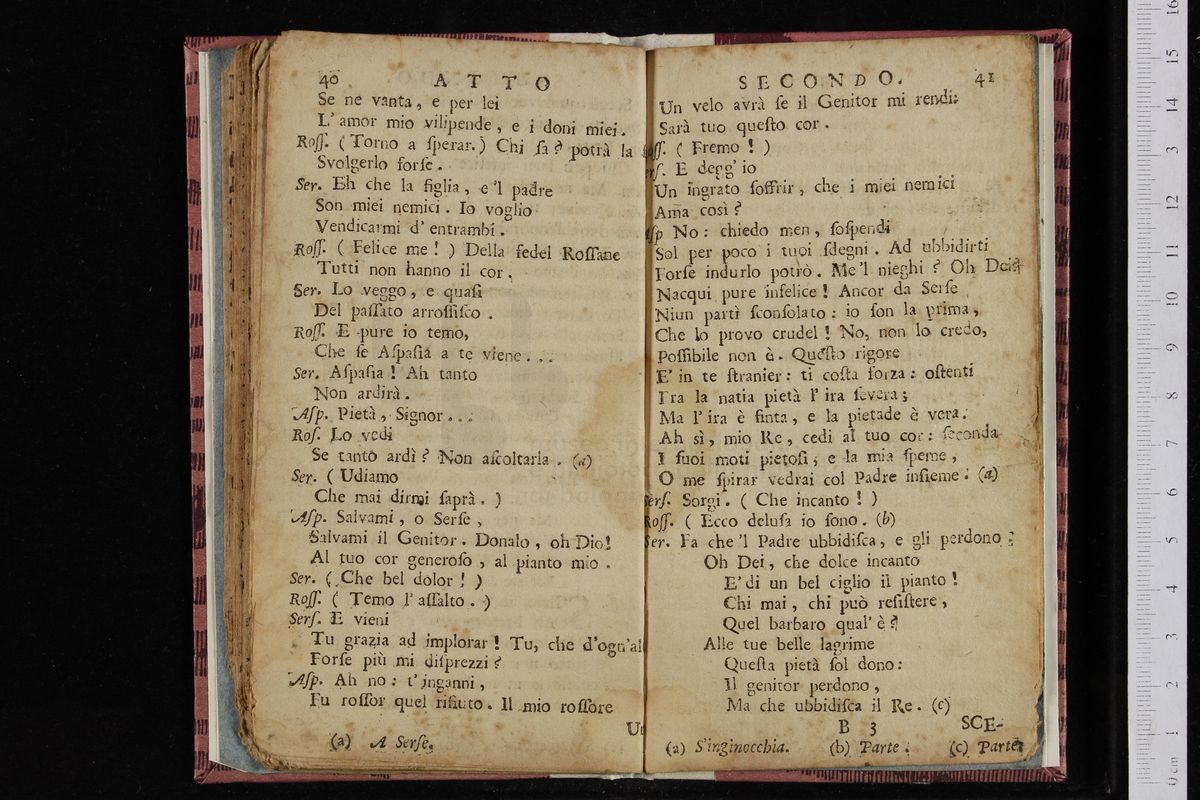 40 ATTO
Se ne vanta, e per lei
L'amor mio vilipende, e i doni miei.
Roſſ. (Torno a ſperar.) Chi ſa? potrà la
Svolgerlo forſe.
Ser. Eh che la figlia, e 'l padre
Son miei nemici. Io voglio
Vendicarmi d'entrambi.
Roſſ. (Felice me!) Della fedel Roſſane
Tutti non hanno il cor.
Ser. Lo veggo, e quaſi
Del paſſato arroſſiſco.
Roſſ. E pure io temo,
Che ſe Aſpaſia a te viene...
Ser. Aſpaſia! Ah tanto
Non ardirà.
Aſp. Pietà, Signor...
Roſ. Lo vedi
Se tanto ardì? Non aſcoltarla. (a)
Ser. (Udiamo
Che mai dirmi ſaprà.)
Aſp. Salvami, o Serſe,
Salvami il Genitor. Donalo, oh Dio!
Al tuo cor generoſo, al pianto mio.
Ser. (Che bel dolor!)
Roſſ. (Temo l'aſſalto.)
Serſ. E vieni
Tu grazia ad implorar! Tu, che d'ogn'al
Forſe più mi diſprezzi?
Aſp. Ah no: t'inganni,
Fu roſſor quel rifiuto. Il mio roſſore
Un
(a) A Serſe.
SECONDO. 41
Un velo avrà ſe il Genitor mi rendi:
Sarà tuo queſto cor.
oſſ. (Fremo!)
erſ. E degg'io
Un ingrato ſoffrir, che i miei nemici
Ama così?
ſp No: chiedo men, ſoſpendi
Sol per poco i tuoi ſdegni. Ad ubbidirti
Forſe indurlo potrò. Me 'l nieghi? Oh Dei!
Nacqui pure infelice! Ancor da Serſe
Niun partì ſconſolato: io ſon la prima,
Che lo provo crudel! No, non lo credo,
Poſſibile non è. Queſto rigore
E' in te ſtranier: ti coſta forza: oſtenti
Fra la natia pietà l'ira ſevera;
Ma l'ira è finta, e la pietade è vera.
Ah sì, mio Re, cedi al tuo cor: ſeconda
I ſuoi moti pietoſi, e la mia ſpeme,
O me ſpirar vedrai col Padre inſieme. (a)
Serſ. Sorgi. (Che incanto!)
Roſſ. (Ecco deluſa io ſono. (b)
Ser. Fa che 'l Padre ubbidiſca, e gli perdono:
Oh Dei, che dolce incanto
E' di un bel ciglio il pianto!
Chi mai, chi può reſiſtere,
Quel barbaro qual'è?
Alle tue belle lagrime
Queſta pietà ſol dono:
Il genitor perdono,
Ma che ubbidiſca il Re. (c)
B 3 SCE-
(a) S'inginocchia. (b) Parte. (c) Parte.